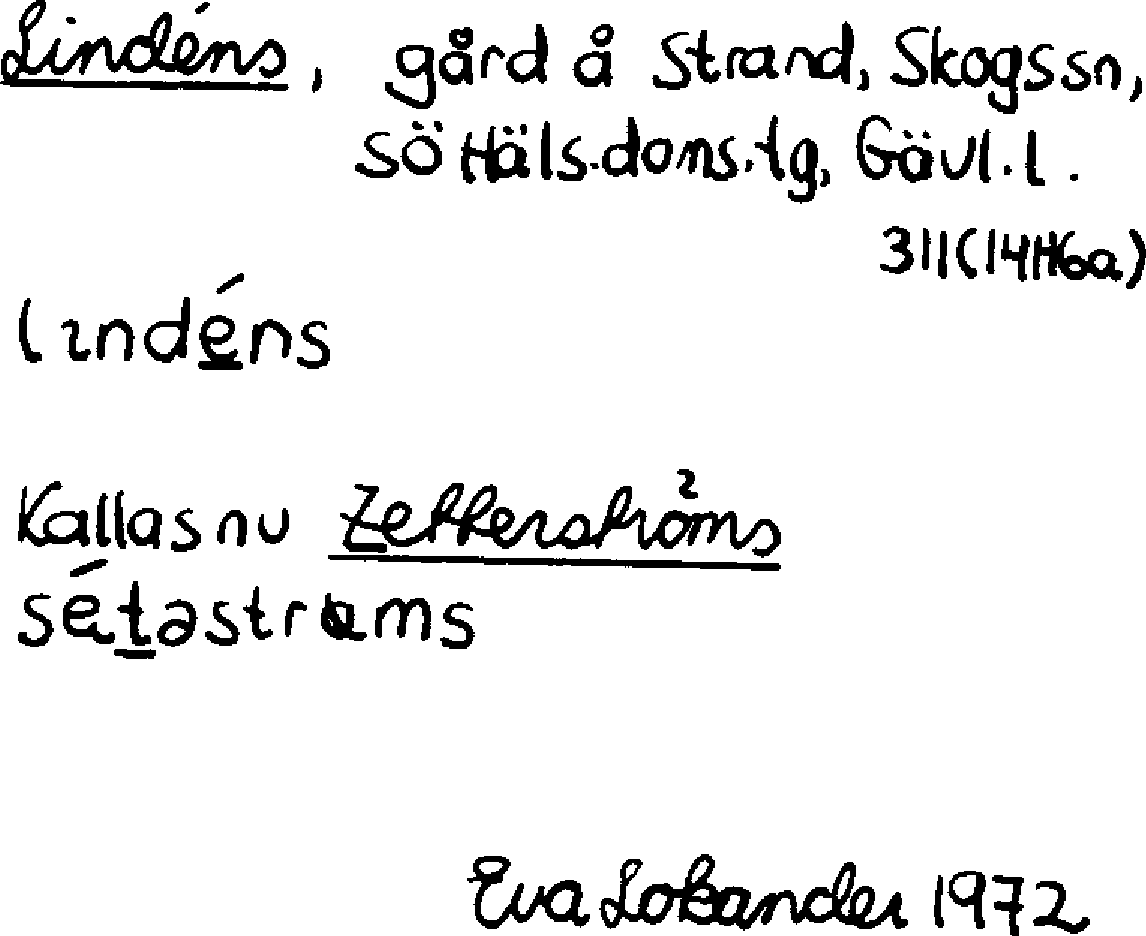 Lindéns, gård å Strand, Skogs sn,
sö Häls. doms. tg, Gävl. l.
311(14H6a)
lındéns
Kallas nu Zetterströms
sétəstrɵms
Eva Lokander 1972